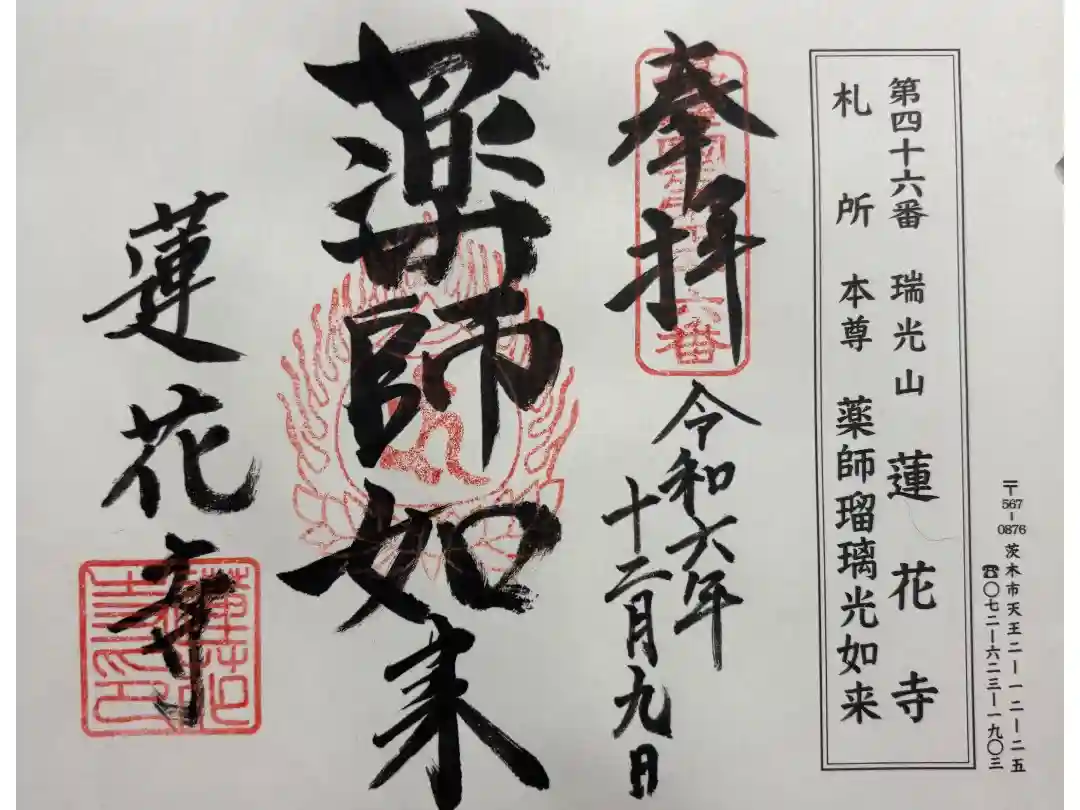 〒567-0876 茨木市天王二-一二-二五
☎〇七二-六二三-一九〇三
第四十六番 瑞光山 蓮花寺
札所 本尊 薬師瑠璃光如来
奉拝
六番
令和六年
十二月九日
薬師如来
蓮花寺